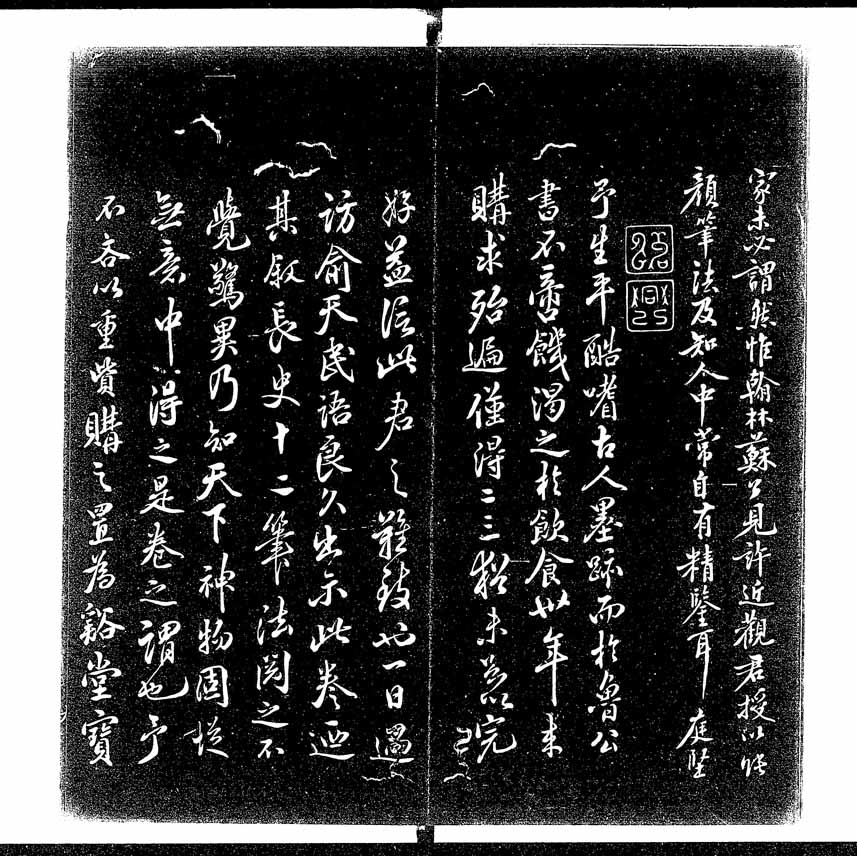 家未必謂然惟翰林蘇公見許近觀君授以能
顏筆法及知人中常自有精鑒耳 庭堅
予生平酷嗜古人墨跡而於魯公
書不啻饑渴之於飲食卅年來
購求殆遍僅得二三猶未為完
好益信此君之難致也一日過
訪俞天民語良久出示此卷迺
其敘長史十二筆法閱之不
覺驚異乃知天下神物固從
無意中得之是卷之謂也予
不吝以重貲購之置為谿堂寶